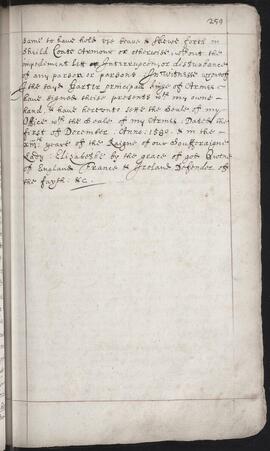 259
same to have hold use beare & shewe forth in
Shield Coate Armour or otherwise, wthout the
impediment let or Interrupcon, or disturbance
of any person or persons In witnesse wherof
I the sayd Garter principall kinge of Armes
have signed these presents wth my owne
hand & have hereunto sett the Seale of my
Office wth the Seale of my Armes. Dated the
first of December. Anno. & in the
yeare of the Raigne of our Souveraigne
Lady: Elizabethe by the grace of god Quene
of England France & Ireland Defender of
the fayth. &c.